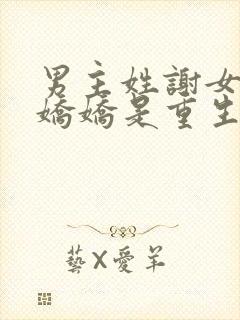 男主姓謝女
嬌嬌是重生
藝X愛羊